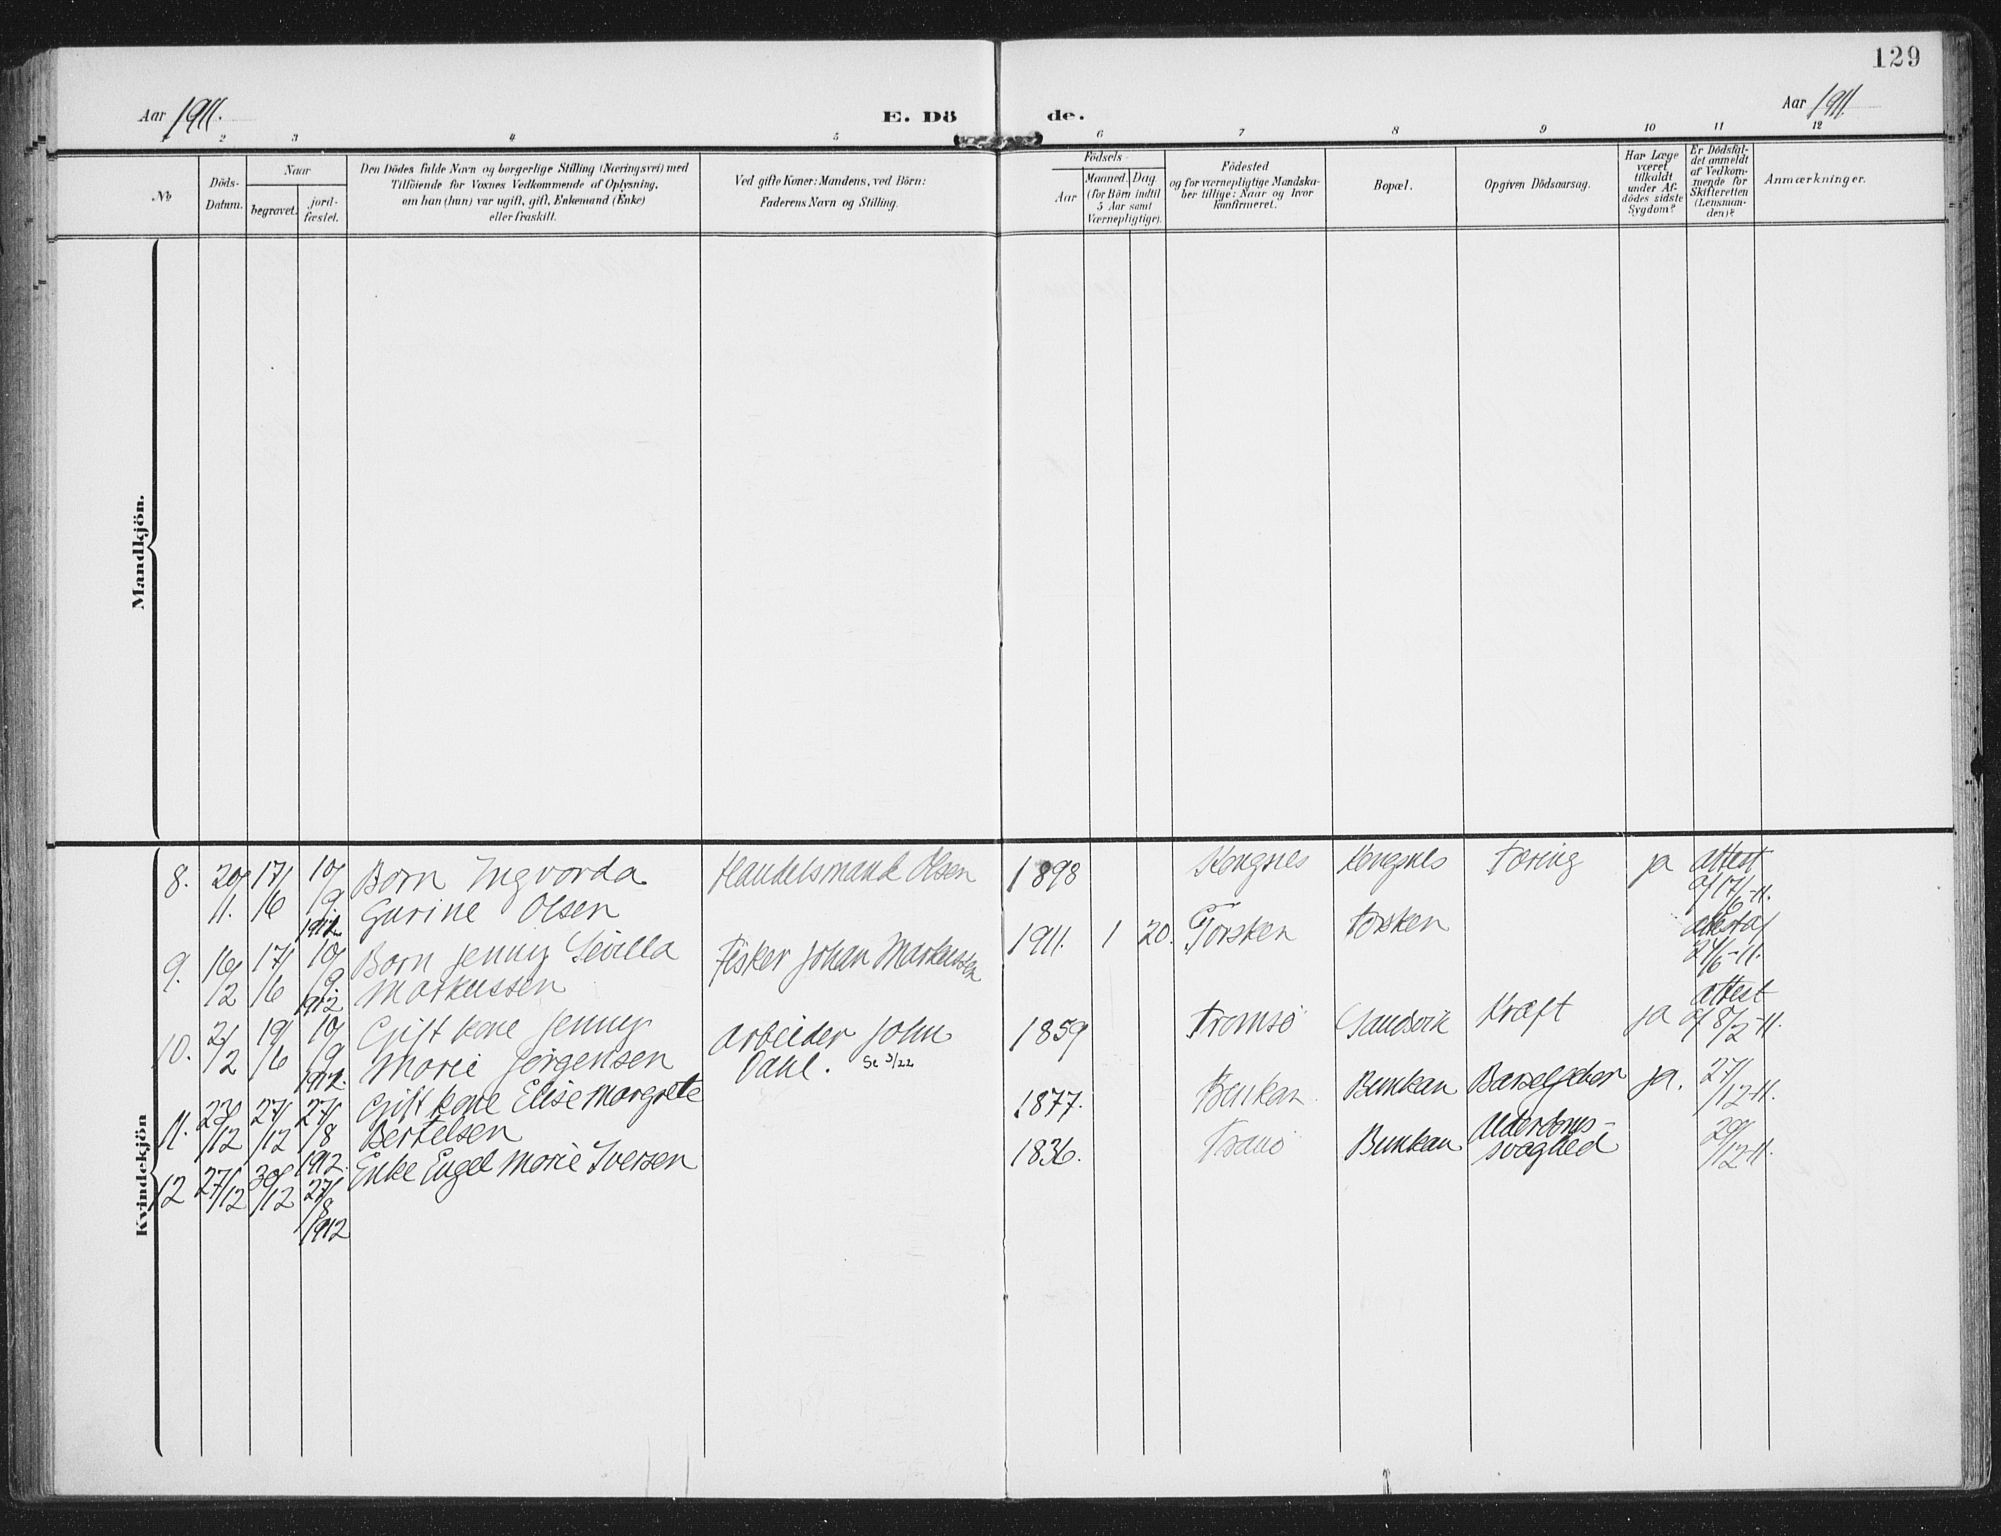 129
Aar 1911.
E. Dö
de.
Aar 1911.
1 2 3 4 5 6 7 8 9 10 11 12
No
Döds-
Datum.
Naar
begravet.
jord-
fæstet.
Den Dödes fulde Navn og borgerlige Stilling (Næringsvei) med
Tilföiende for Voxnes Vedkommende af Oplysning,
om han (hun) var ugift, gift, Enkemand (Enke)
eller fraskilt.
Ved gifte Koner: Mandens, ved Börn:
Faderens Navn og Stilling.
Födsels-
Aar
Maaned. Dag.
(for Börn indtil
5 Aar samt
Værnepligtige).
Födested
og for værnepligtige Mandska-
ber tillige: Naar og hvor
konfirmeret.
Bopæl.
Opgiven Dödsaarsag.
Har Læge
været
tilkaldt
under Af-
dödes sidste
Sygdom?
Er Dödsfal-
det anmeldt
af Vedkom-
mende for
Skifteretten
(Lensman-
den)?
Anmærkninger.
Mandkjön.
Kvindekjön
8. 20/11. 17/6 10/9 1912 Barn Ingvorda Handelsmand Olsen 1898 Kongsnes Kongsnes Tæring ja attest
Gurine Olsen af 17/6-11.
9. 16/2 17/6 10/9 1912 Barn Jenny Sevilla Fisker Johan Markussen 1911. 1 20. Torsken Torsken
Markussen 24/6-11.
10. 2/2 19/6 10/9 1912 Gift kone Jenny Arbeider John 1859 Tromsö Sandvik Kræft ja attest
Marie Jörgensen Dahl. Se 3/22 af 8/2-11.
11. 23/12 27/12 27/8 1912. Gift kone Elise Margrete 1877. Bunkan Bunkan Barselfeber ja. 27/12-11.
Bertelsen
12 27/12 30/12 27/8 1912 Enke Engel Marie Iversen 1836. Tranö Bunkan Alderdoms- 29/12-11.
svaghed